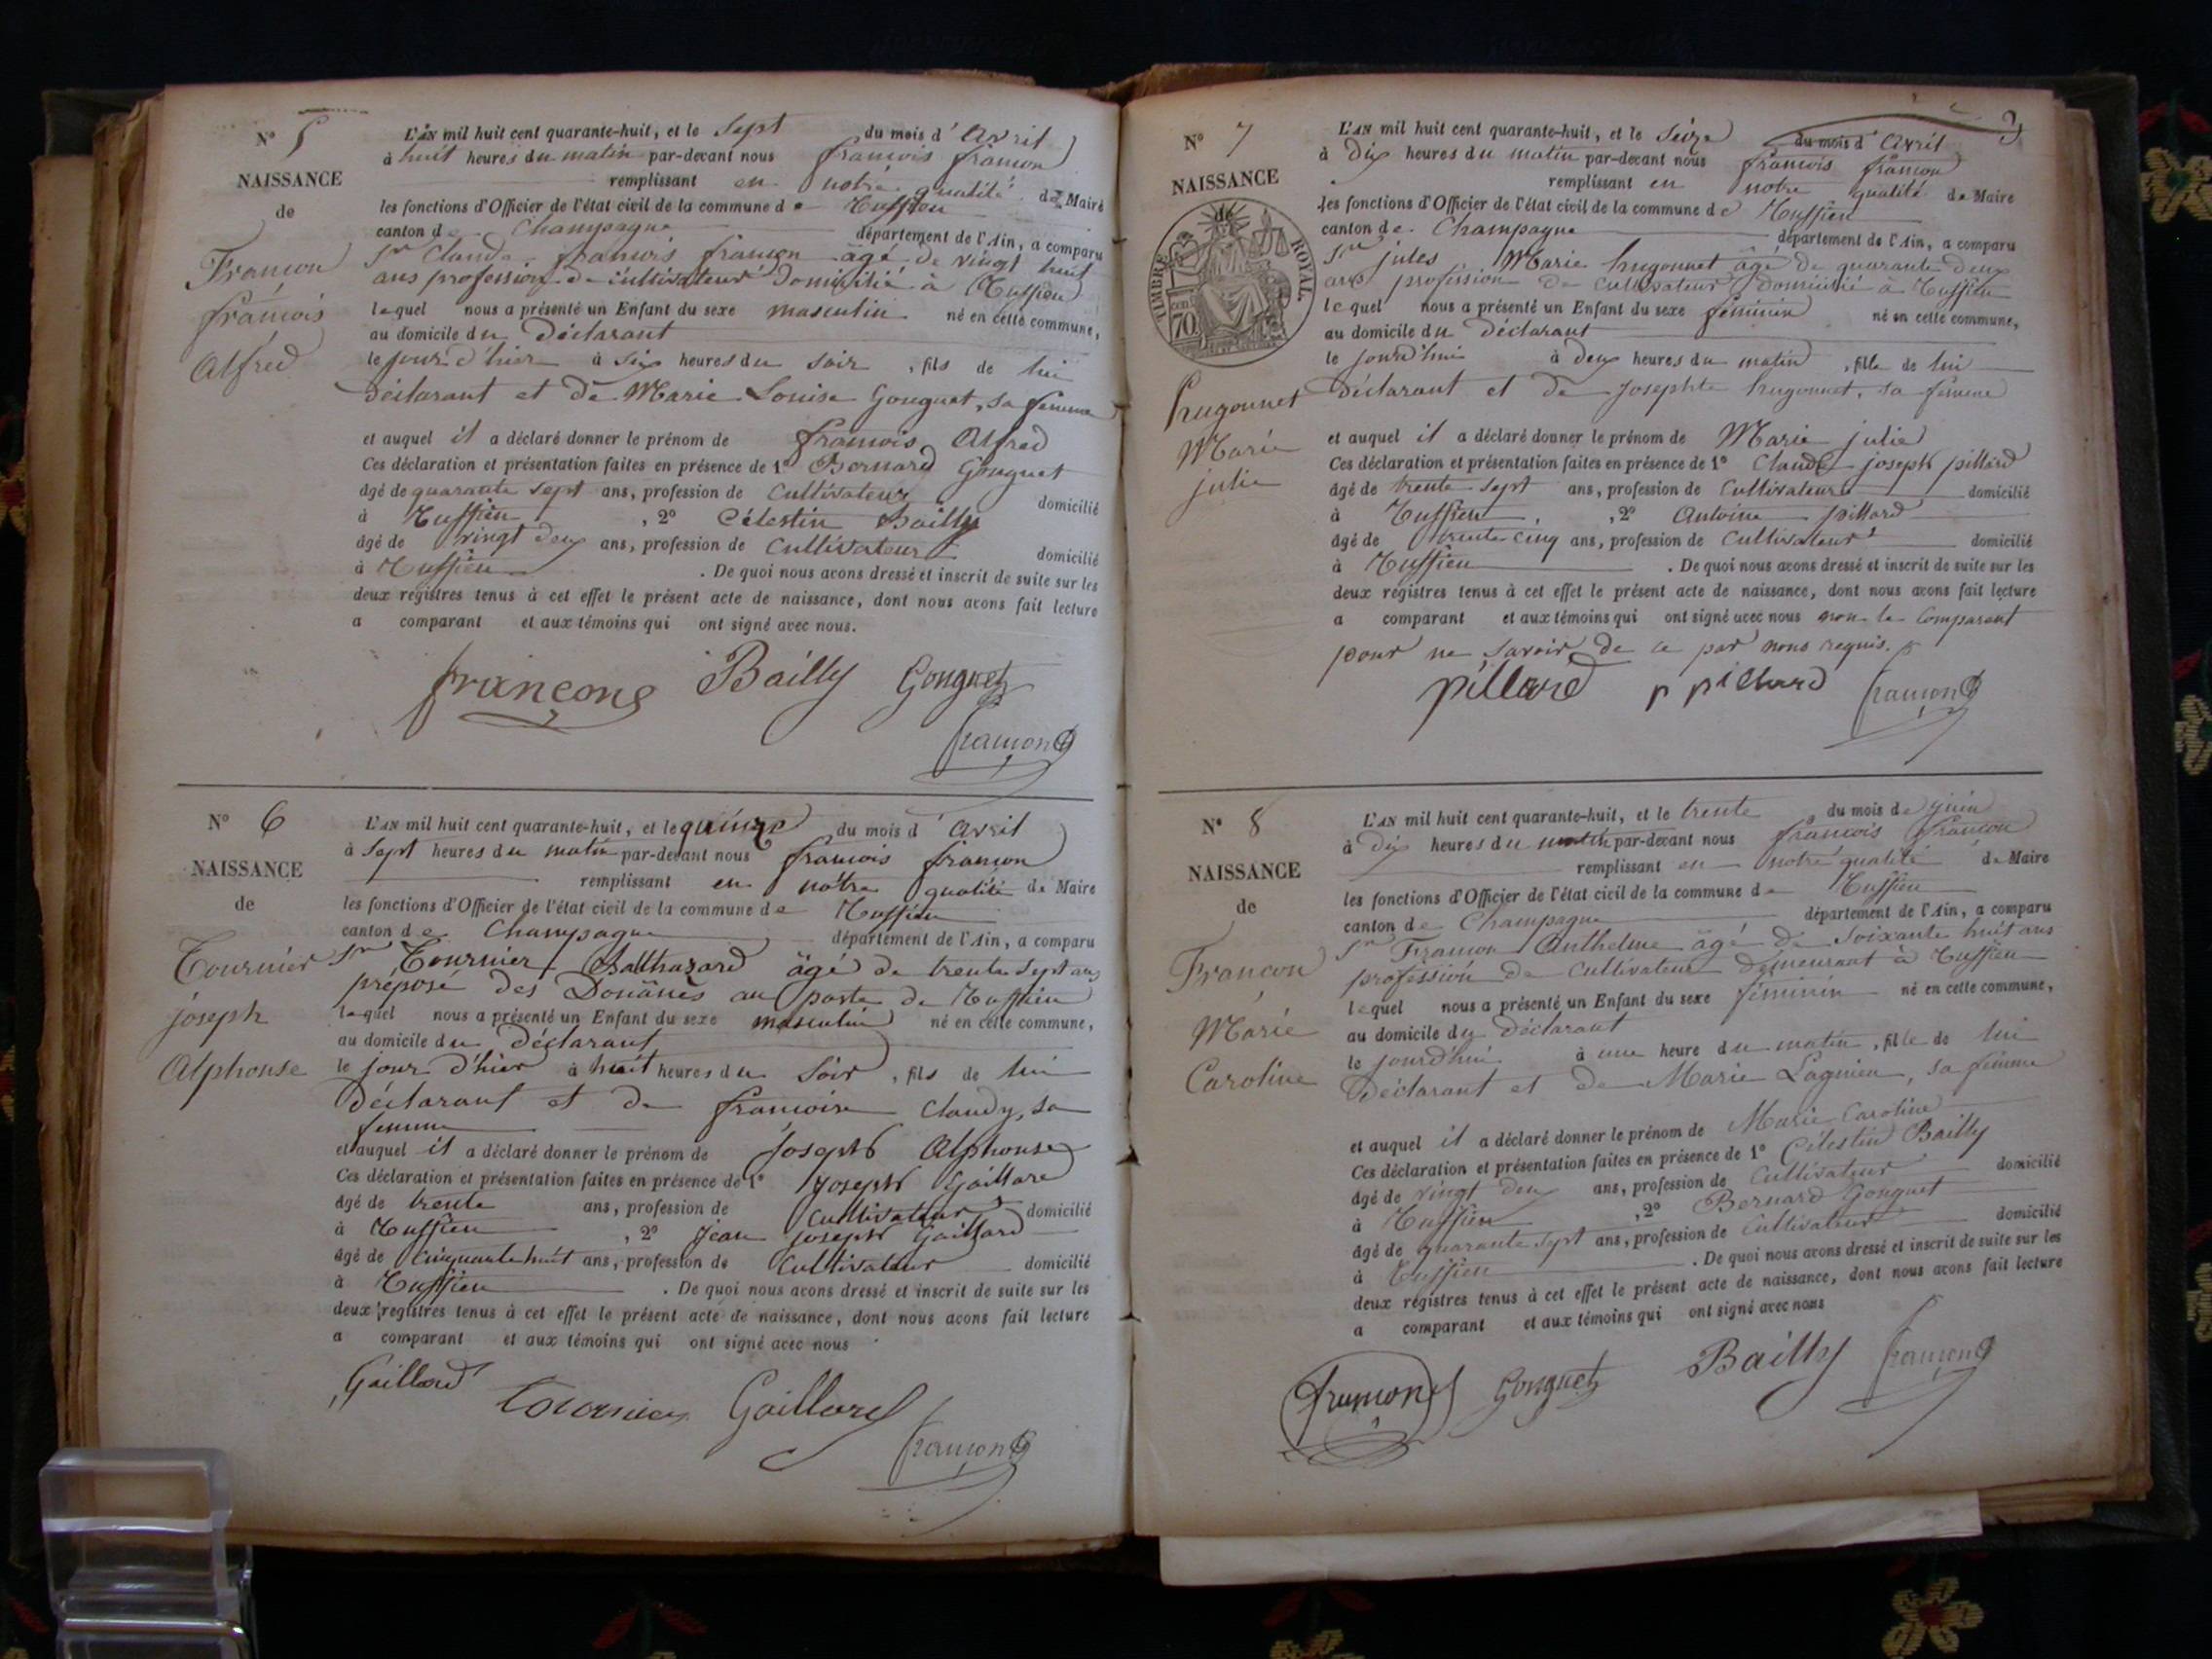 N° 5
NAISSANCE
de
Françon
françois
Alfred
L'AN mil huit cent quarante-huit, et le sept du mois d'avril
à huit heures du matin par-devant nous françois françon
remplissant en notre qualité de Maire
les fonctions d'Officier de l'état civil de la commune de
canton de Champagne département de l'Ain, a comparu
Sr Claude françois françon âgé de vingt huit
ans profession de cultivateur domicilié à
lequel nous a présenté un Enfant du sexe masculin né en cette commune,
au domicile du Déclarant
le jour d'hier à six heures du soir, fils de lui
déclarant et de Marie Louise Gonguet, sa femme
et auquel il a déclaré donner le prénom de françois Alfred
Ces déclaration et présentation faites en présence de 1° Bernard Gonguet
âgé de quarante sept ans, profession de Cultivateur domicilié
à , 2° Célestin Bailly
âgé de vingt deux ans, profession de Cultivateur domicilié
à . De quoi nous avons dressé et inscrit de suite sur les
deux registres tenus à cet effet le présent acte de naissance, dont nous avons fait lecture
a comparant et aux témoins qui ont signé avec nous.
françon Bailly Gonguet
françon
N° 6
NAISSANCE
de
Tournier
joseph
Alphonse
L'AN mil huit cent quarante-huit, et le quinze du mois d'avril
à sept heures du matin par-devant nous françois françon
remplissant en notre qualité de Maire
les fonctions d'Officier de l'état civil de la commune de
canton de Champagne département de l'Ain, a comparu
Sr Tournier Balthazard âgé de trente sept ans
préposé des Douânes au poste de
lequel nous a présenté un Enfant du sexe masculin né en cette commune,
au domicile du Déclarant
le jour d'hier à huit heures du soir, fils de lui
Déclarant et de françoise Claudy, sa
femme
et auquel il a déclaré donner le prénom de Joseph Alphonse
Ces déclaration et présentation faites en présence de 1° Joseph Gaillard
âgé de trente ans, profession de Cultivateur domicilié
à , 2° Jean joseph Gaillard
âgé de cinquante huit ans, profession de Cultivateur domicilié
à . De quoi nous avons dressé et inscrit de suite sur les
deux registres tenus à cet effet le présent acte de naissance, dont nous avons fait lecture
a comparant et aux témoins qui ont signé avec nous
Gaillard Tournier Gaillard
françon
3
N° 7
NAISSANCE
de
TIMBRE ROYAL
70
hugonnet
Marie
julie
L'AN mil huit cent quarante-huit, et le seize du mois d'avril
à dix heures du matin par-devant nous françois françon
remplissant en notre qualité de Maire
les fonctions d'Officier de l'état civil de la commune de
canton de Champagne département de l'Ain, a comparu
Sr jules Marie hugonnet âgé de quarante deux
ans profession de cultivateur domicilié à
lequel nous a présenté un Enfant du sexe féminin né en cette commune,
au domicile du Déclarant
le jourd'hui à deux heures du matin, fille de lui
déclarant et de josephte hugonnet, sa femme
et auquel il a déclaré donner le prénom de Marie julie
Ces déclaration et présentation faites en présence de 1° Claude joseph pillard
âgé de trente sept ans, profession de Cultivateur domicilié
à , 2° Antoine pillard
âgé de trente cinq ans, profession de cultivateur domicilié
à . De quoi nous avons dressé et inscrit de suite sur les
deux registres tenus à cet effet le présent acte de naissance, dont nous avons fait lecture
a comparant et aux témoins qui ont signé avec nous non le comparant
pour ne savoir de ce par nous requis.
pillard p pillard françon
N° 8
NAISSANCE
de
Françon
Marie
Caroline
L'AN mil huit cent quarante-huit, et le trente du mois de juin
à dix heures du matin par-devant nous françois françon
remplissant en notre qualité de Maire
les fonctions d'Officier de l'état civil de la commune de
canton de Champagne département de l'Ain, a comparu
Sr Françon Anthelme âgé de soixante huit ans
profession de cultivateur demeurant à
lequel nous a présenté un Enfant du sexe féminin né en cette commune,
au domicile du Déclarant
le jourd'hui à une heure du matin, fille de lui
Déclarant et de Marie Lagnieu, sa femme
et auquel il a déclaré donner le prénom de Marie Caroline
Ces déclaration et présentation faites en présence de 1° Célestin Bailly
âgé de vingt deux ans, profession de Cultivateur domicilié
à , 2° Bernard Gonguet
âgé de quarante sept ans, profession de Cultivateur domicilié
à . De quoi nous avons dressé et inscrit de suite sur les
deux registres tenus à cet effet le présent acte de naissance, dont nous avons fait lecture
a comparant et aux témoins qui ont signé avec nous
françon Gonguet Bailly françon